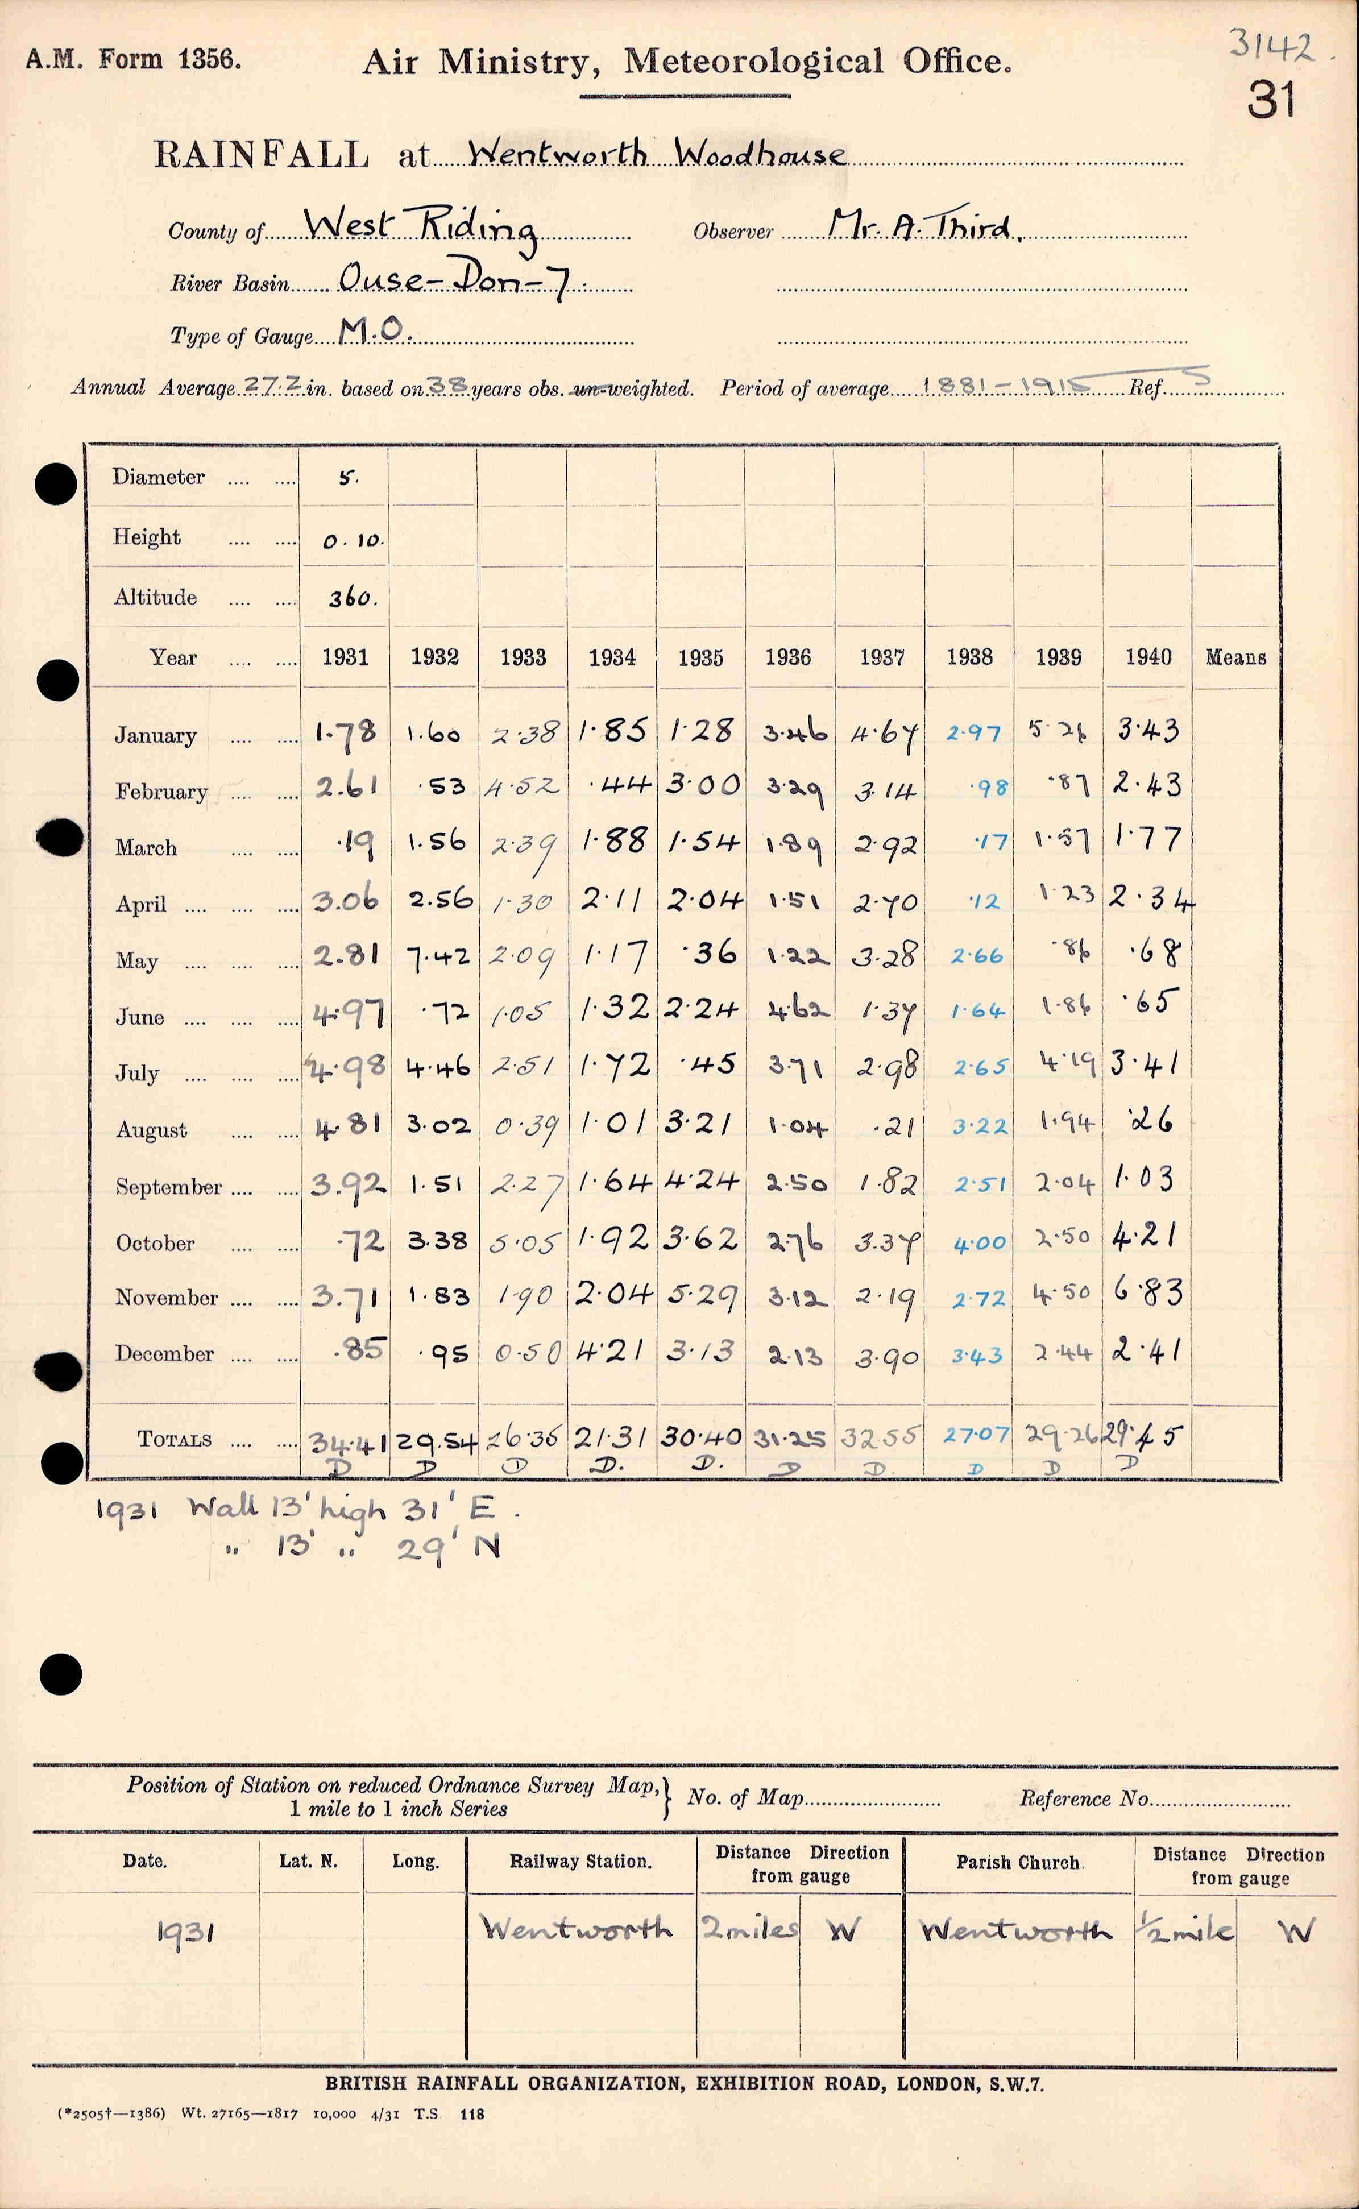 A.M. Form 1356.
Air Ministry, Meteorological Office.
3142.
31
RAINFALL at Wentworth Woodhouse
County of West Riding Observer Mr. A. Third.
River Basin Ouse-Don-7.
Type of Gauge M.O.
Annual Average 27.2 in. based on 38 years obs. un-weighted. Period of average 1881-1915 Ref. 5
Diameter 5.
Height 0.10.
Altitude 360.
Year 1931 1932 1933 1934 1935 1936 1937 1938 1939 1940 Means
January 1.78 1.60 2.38 1.85 1.28 3.46 4.67 2.97 5.26 3.43
February 2.61 .53 4.52 .44 3.00 3.29 3.14 .98 .87 2.43
March .19 1.56 2.39 1.88 1.54 1.89 2.92 .17 1.57 1.77
April 3.06 2.56 1.30 2.11 2.04 1.51 2.70 .12 1.23 2.34
May 2.81 7.42 2.09 1.17 .36 1.22 3.28 2.66 .86 .68
June 4.97 .72 1.05 1.32 2.24 4.62 1.37 1.64 1.86 .65
July 4.98 4.46 2.51 1.72 .45 3.71 2.98 2.65 4.19 3.41
August 4.81 3.02 0.39 1.01 3.21 1.04 .21 3.22 1.94 .26
September 3.92 1.51 2.27 1.64 4.24 2.50 1.82 2.51 2.04 1.03
October .72 3.38 5.05 1.92 3.62 2.76 3.37 4.00 2.50 4.21
November 3.71 1.83 1.90 2.04 5.29 3.12 2.19 2.72 4.50 6.83
December .85 .95 0.50 4.21 3.13 2.13 3.90 3.43 2.44 2.41
TOTALS 34.41 29.54 26.35 21.31 30.40 31.25 32.55 27.07 29.26 29.45
D D D D. D. D D. D D D
1931 Wall 13' high 31' E.
" 13' " 29' N
Position of Station on reduced Ordnance Survey Map,
1 mile to 1 inch Series } No. of Map Reference No.
Date. Lat. N. Long. Railway Station. Distance Direction from gauge Parish Church. Distance Direction from gauge
1931 Wentworth 2 miles W Wentworth 1/2 mile W
BRITISH RAINFALL ORGANIZATION, EXHIBITION ROAD, LONDON, S.W.7.
(*2505†—1386) Wt. 27165—1817 10,000 4/31 T.S. 118